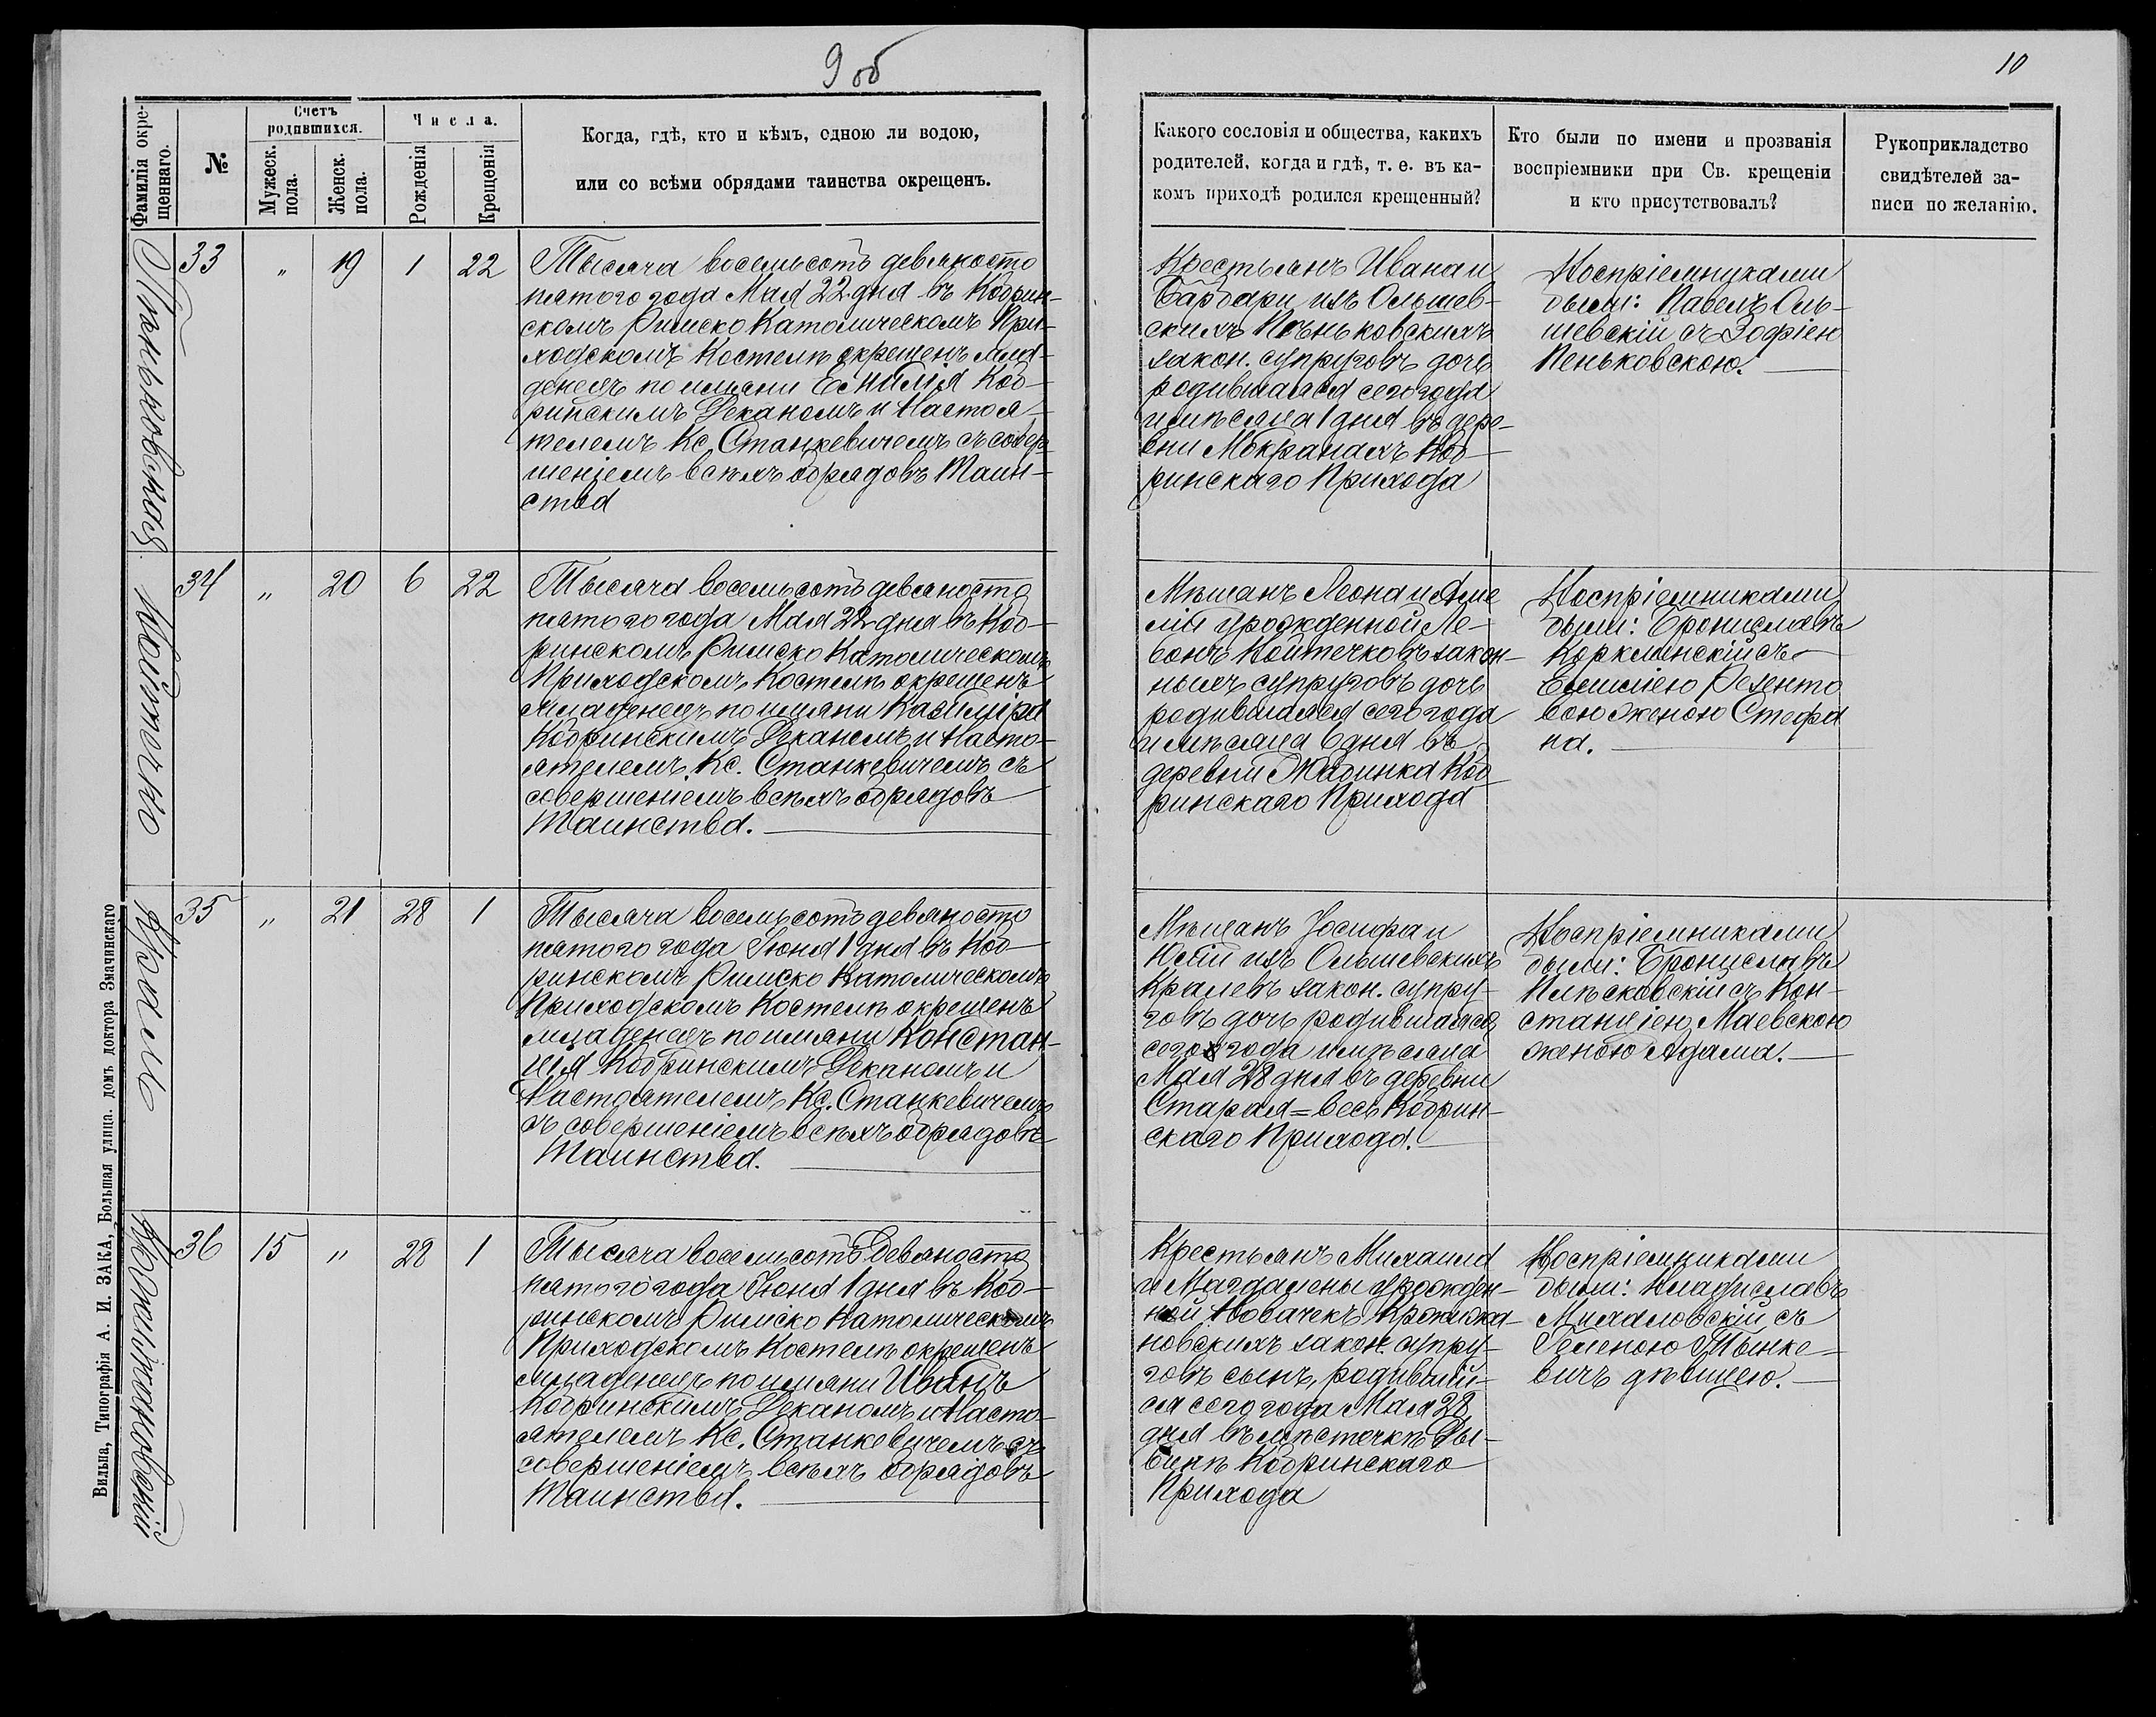 9 об
10
Фамилія окре-
щеннаго.
№
Счетъ
родившихся.
Мужеск.
пола.
Женск.
пола.
Числа.
Рожденія
Крещенія
Когда, гдѣ, кто и кѣмъ, одною ли водою,
или со всѣми обрядами таинства окрещенъ.
Какого сословія и общества, какихъ
родителей, когда и гдѣ, т. е. въ ка-
комъ приходѣ родился крещенный?
Кто были по имени и прозванія
воспріемники при Св. крещеніи
и кто присутствовалъ?
Рукоприкладство
свидѣтелей за-
писи по желанію.
Пѣньковская
33 " 19 1 22
Тысяча восемьсотъ девяносто
пятого года Мая 22 дня въ Кобрин-
скомъ Римско Католическомъ При-
ходскомъ Костелѣ окрещенъ мла-
денецъ по имяни Емилія Коб-
ринскимъ Деканомъ и Настоя-
телемъ Кс. Станкевичемъ съ совер-
шеніемъ всѣхъ обрядовъ Таин-
ства
Крестьянъ Ивана и
Барбари изъ Ольшев-
скихъ Пѣньковскихъ
закон. супруговъ дочь
родившаяся сего года
и мѣсяца 1 дня въ дере-
вни Мокранахъ Коб-
ринскаго Прихода
Воспріемниками
были: Павелъ Оль-
шевскій съ Зофіею
Пеньковскою.
Койтечко
34 " 20 6 22
Тысяча восемьсотъ девяносто
пятого года Мая 22 дня въ Коб-
ринскомъ Римско Католическомъ
Приходскомъ Костелѣ окрещенъ
младенецъ по имяни Казимира
Кобринскимъ Деканомъ и Насто-
ятелемъ Кс. Станкевичемъ съ
совершеніемъ всѣхъ обрядовъ
Таинства.
Мѣщанъ Леона и Аме
ліи урожденной Ле-
вонъ Койтечковъ закон-
ныхъ супруговъ дочь
родившаяся сего года
и мѣсяца 6 дня въ
деревни Жабинка Коб
ринскаго Прихода
Воспріемниками
были: Брониславъ
съ
Емиліею
вою женою Стефа
на.
Краль
35 " 21 28 1
Тысяча восемьсотъ девяносто
пятого года Іюня 1 дня въ Коб-
ринскомъ Римско Католическомъ
Приходскомъ Костелѣ окрещенъ
младенецъ по имяни Констан-
ція Кобринскимъ Деканомъ и
Настоятелемъ Кс. Станкевичемъ
съ совершеніемъ всѣхъ обрядовъ
Таинства.
Мѣщанъ Іосифа и
Юліи изъ Ольшевскихъ
Кралевъ закон. супру-
говъ дочь родившаяся
сего года и мѣсяца
Мая 28 дня въ деревни
Старая=весь Кобрин-
скаго Прихода.
Воспріемниками
были: Брониславъ
съ Кон-
станціею Маевскою
женою Адама.
36 15 " 28 1
Тысяча восемьсотъ девяносто
пятого года Іюня 1 дня въ Коб-
ринскомъ Римско Католическомъ
Приходскомъ Костелѣ окрещенъ
младенецъ по имяни Иванъ
Кобринскимъ Деканомъ и Насто-
ятелемъ Кс. Станкевичемъ съ
совершеніемъ всѣхъ обрядовъ
Таинства.
Крестьянъ Михаила
и Магдалены урожден-
ной Новачекъ
новскихъ закон. супру-
говъ сынъ, родивший-
ся сего года Мая 28
дня въ мѣстечкѣ Ды-
винѣ Кобринскаго
Прихода
Воспріемниками
были: Владиславъ
Михаловскій съ
Геленою Тынке-
вичъ дѣвицею.
Вильна, Типографія А. И. ЗАКА, Большая улица. домъ доктора Змачинскаго